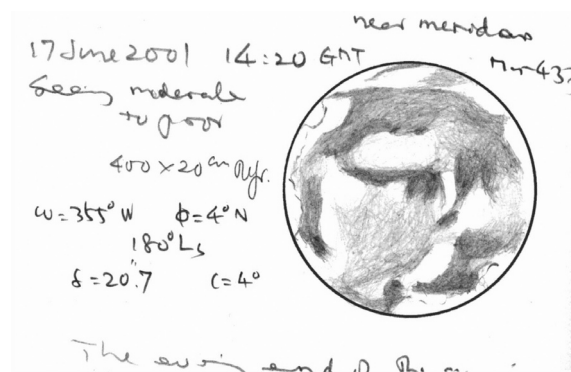 near meridian
17 June 2001 14:20 GMT
Seeing moderate
to poor
400 × 20cm
ω=355°W φ=4°N
180°Ls
δ=20".7 C=4°
The